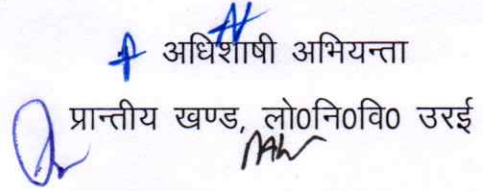 अधिशाषी अभियन्ता
प्रान्तीय खण्ड, लो0नि0वि0 उरई